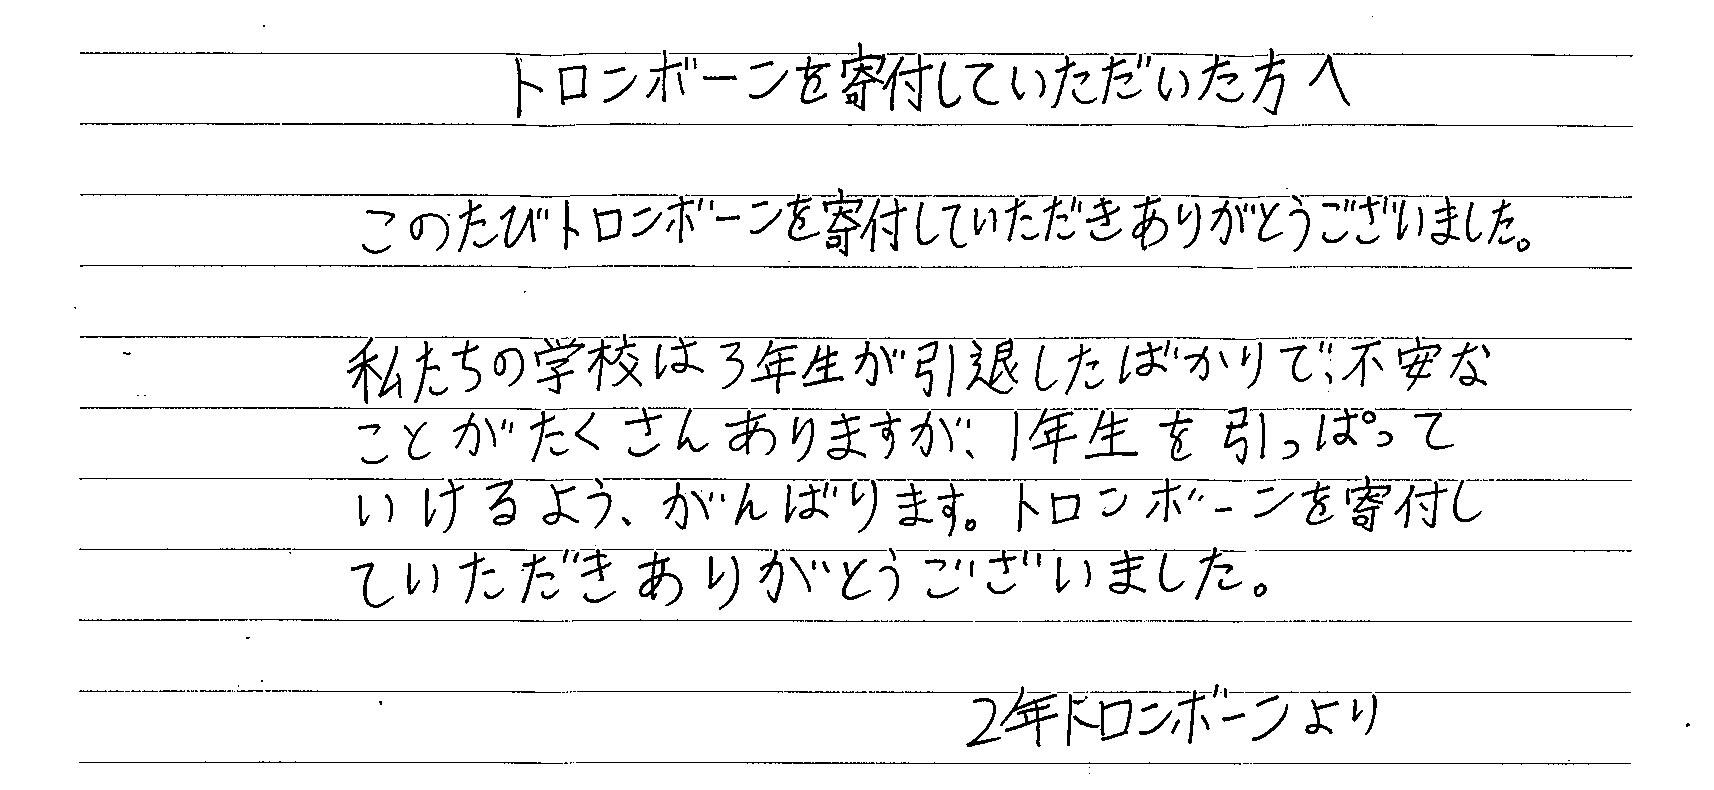 トロンボーンを寄付していただいた方へ
このたびトロンボーンを寄付していただきありがとうございました。
私たちの学校は3年生が引退したばかりで、不安な
ことがたくさんありますが、1年生を引っぱって
いけるよう、がんばります。トロンボーンを寄付し
ていただきありがとうございました。
2年トロンボーンより